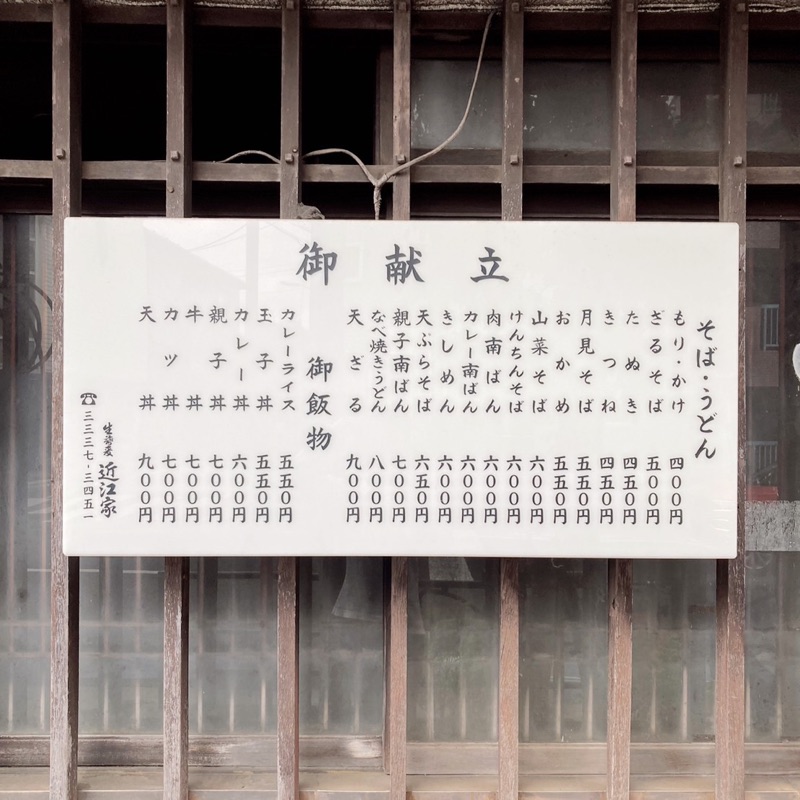 御献立
そば・うどん
もり・かけ 四〇〇円
ざるそば 五〇〇円
たぬき 四五〇円
きつね 四五〇円
月見そば 五五〇円
おかめ 五五〇円
山菜そば 六〇〇円
けんちんそば 六〇〇円
肉南ばん 六〇〇円
カレー南ばん 六〇〇円
きしめん 六〇〇円
天ぷらそば 六五〇円
親子南ばん 七〇〇円
なべ焼きうどん 八〇〇円
天ざる 九〇〇円
御飯物
カレーライス 五五〇円
玉子丼 五五〇円
カレー丼 六〇〇円
親子丼 七〇〇円
牛丼 七〇〇円
カツ丼 七〇〇円
天丼 九〇〇円
生蕎麦 近江家
☎三三三七-三四五一